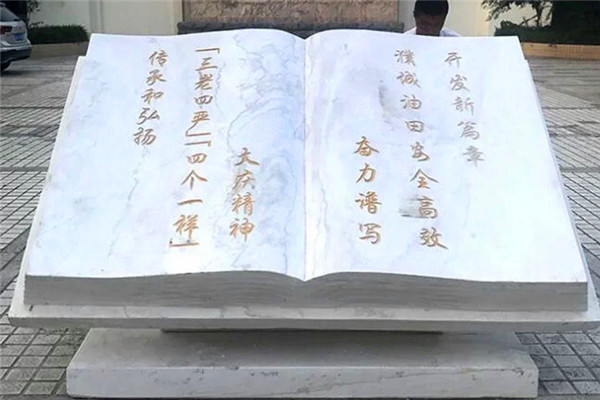 传承和弘扬
「三老四严」「四个一样」
大庆精神
奋力谱写
濮城油田安全高效
开发新篇章